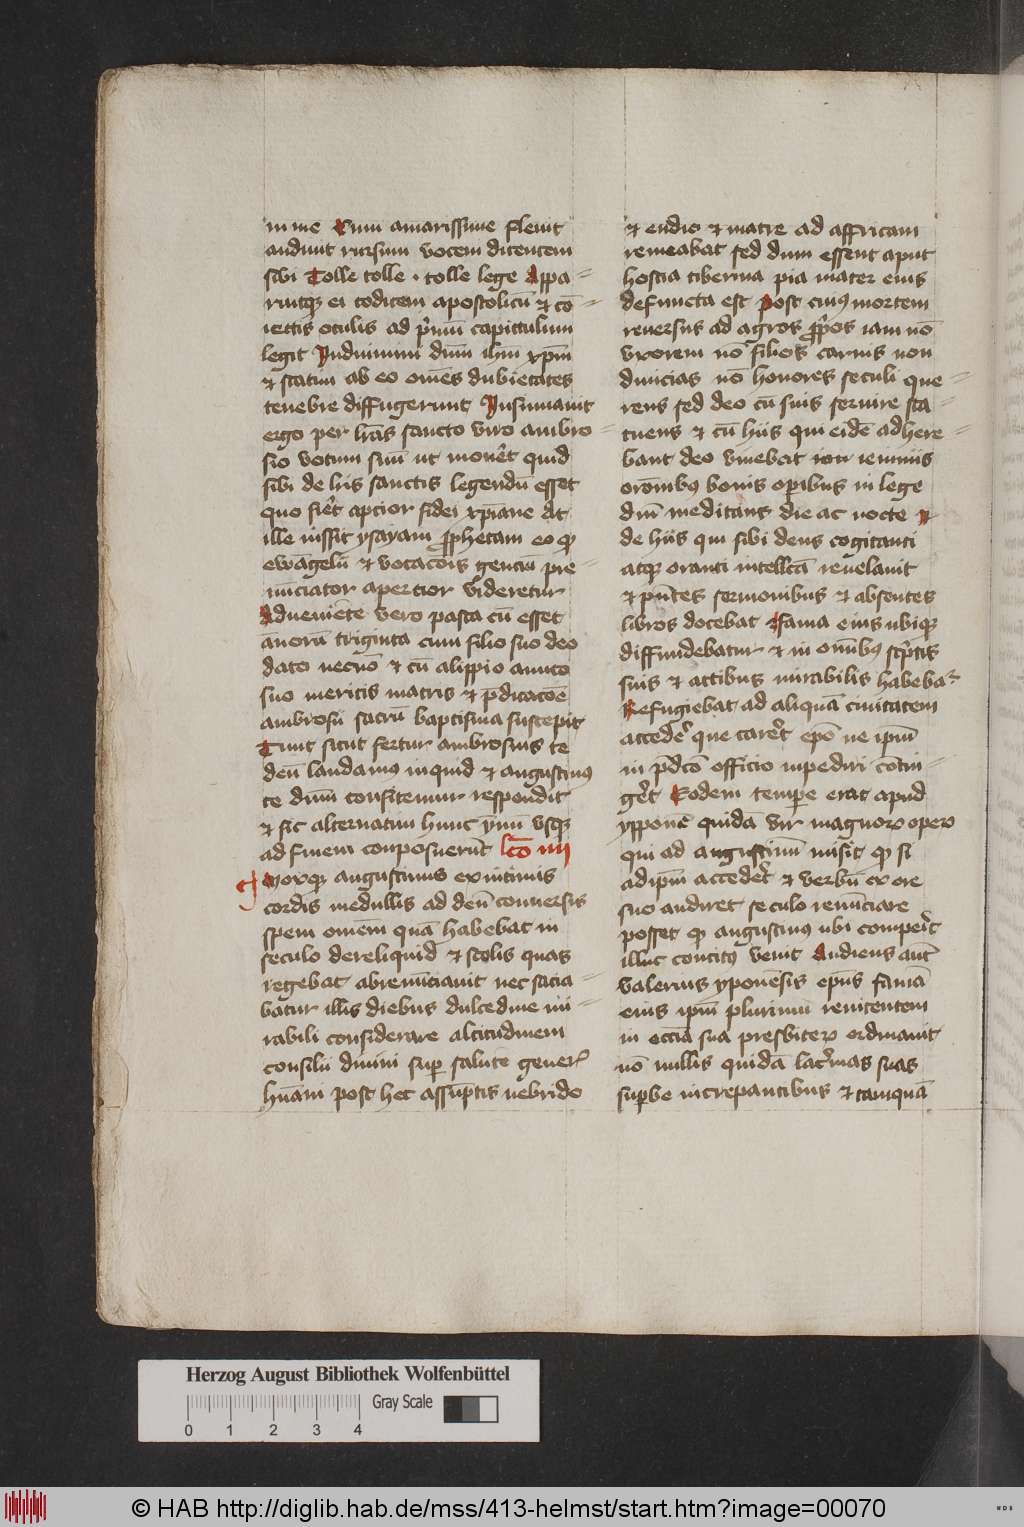 in me Cum amarissime fleuit
audiuit rursum vocem dicentem
sibi Tolle tolle · tolle lege Appa=
ruitqȝ ei codicem apostolicū ⁊ cō=
iectis oculis ad p̄mū capittulum
legit Induimini dm̄ ihm̄ xpm̄
⁊ statim ab eo om̄es dubietates
tenebre diffugerunt Insinuauit
ergo per lr̄as sancto viro ambro=
sio votum suū ut monēt quid
sibi de libris sanctis legendū esset
quo fiēt aptior fidei xpiane At
ille iussit ysayam ꝓphetam eo ꝙ
ewāgelii ⁊ vocacōis genciū pre
nūciator apercior videretur
Adueniēte vero pasca cū esset
ānorū triginta cum filio suo deo
dato necnō ⁊ cū alippio amico
suo meritis matris ⁊ p̄dicacōe
ambrosii sacrū baptisma suscepit
Tunc sicut fertur ambrosius te
deū laudamus inquid ⁊ augustinus
te dm̄ confitemur respondit
⁊ sic alternatim hunc ymnū vsqȝ
ad finem composuerūt lc̄o iiii
Moxqȝ augustinus ex intimis
cordis medullis ad deū conuersus
spem om̄em quā habebat in
seculo dereliquid ⁊ scolis quas
regebat abrenūciauit nec sacia=
batur illis diebus dulcedine mi=
rabili considerare altitudinem
consilii diuini sup̄ salute gener̄
hūani post hec assūptis nebridio
⁊ eudio ⁊ matre ad affricam
remeabat sed dum essent aput
hostia tiberina pia mater eius
defuncta est Post cuiꝰ mortem
reuersus ad agros ꝓp̄os iam nō
vxorem nō filios carnis non
diuicias nō honores seculi que=
rens sed deo cū suis seruire sta=
tuens ⁊ cū hiis qui eidē adhere=
bant deo viuebat ieiuniis
orōnibꝰ bonis op̄ibus in lege
dm̄ meditans die ac nocte Et
de hiis qui sibi deus cogitanti
atqȝ oranti intellc̄a reuelauit
⁊ pn̄tes sermonibus ⁊ absentes
libros docebat Fama eius ubiqȝ
diffundebatur ⁊ in om̄ibꝰ scp̄tis
suis ⁊ actibus mirabilis habebat̄
Refugiebat ad aliquā ciuitatem
accedēr que carēt epō ne ipm̄
in p̄dc̄o officio inpediri cōtin=
gēt Eodem tempore erat apud
ypponē quidā vir magnorū operū
qui ad augustinū misit ꝙ si
ad ipm̄ accedēt ⁊ verbū ex ore
suo audiret seculo renūciare
posset ꝙ augustinꝰ ubi compēit
illuc concitꝰ venit Audiens aūt
valerius yponēsis epūs famā
eius ipm̄ plurimū renitentem
in ecc̄ia sua presbiterū ordinauit
nō nullis quidā lac̄mas suas
sup̄be increpantibus ⁊ tamquā
Herzog August Bibliothek Wolfenbüttel
Gray Scale
0 1 2 3 4
© HAB http://diglib.hab.de/mss/413-helmst/start.htm?image=00070